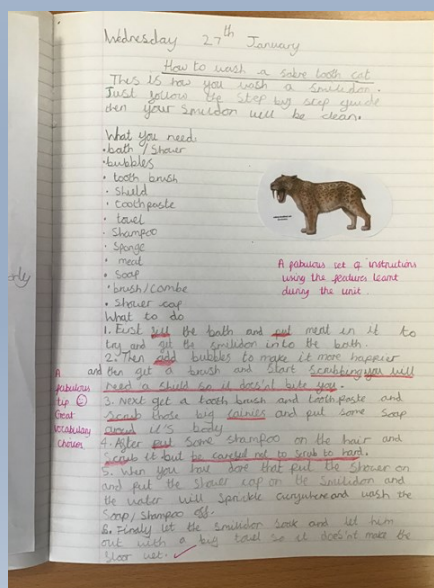 Wednesday 27th January
How to wash a sabre tooth cat
This is how you wash a smilidon.
Just follow the step by step guide
then your smilidon will be clean.
What you need:
• bath / shower
• bubbles
• tooth brush
• sheild
• toothpaste
• towel
• Shampoo
• Sponge
• meat
• Soap
• brush/combe
• shower cap
A fabulous set of instructions
using the features learnt
during the unit.
What to do
1. First fill the bath and put meat in it to
try and get the smilidon into the bath.
2. Then add bubbles to make it more happier
and then get a brush and start scrubbing you will
need a sheild so it does'nt bite you.
3. Next get a tooth brush and toothpaste and
scrub those big canines and put some soap
it's body
4. After put some shampoo on the hair and
scrub it but be careful not to scrub to hard.
5. When you have done that put the shower on
and put the shower cap on the smilidon and
the water will sprinkle everywhere and wash the
Soap/Shampoo off.
6. Finally let the smilidon soak and let him
out with a big towel so it does'nt make the
floor wet.
A
fabulous
tip
Great
vocabulary
choices
only